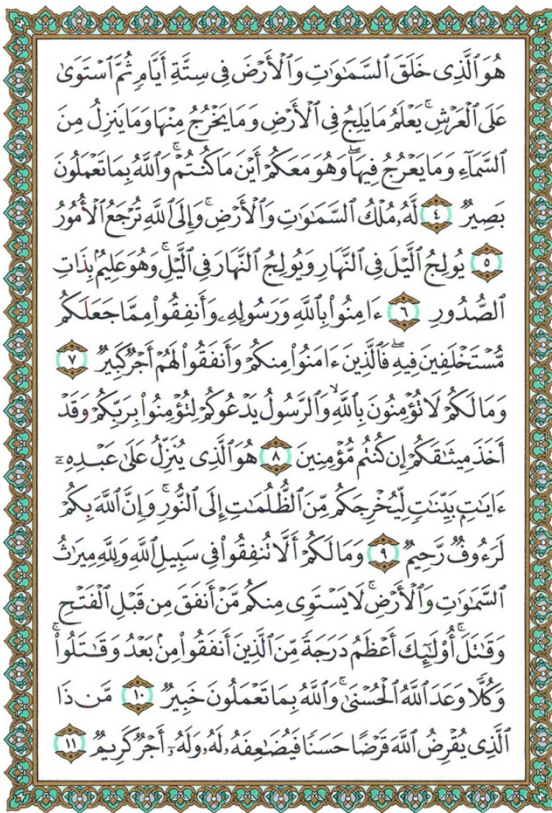 هُوَ ٱلَّذِى خَلَقَ ٱلسَّمَٰوَٰتِ وَٱلْأَرْضَ فِى سِتَّةِ أَيَّامٍ ثُمَّ ٱسْتَوَىٰ
عَلَى ٱلْعَرْشِ ۚ يَعْلَمُ مَا يَلِجُ فِى ٱلْأَرْضِ وَمَا يَخْرُجُ مِنْهَا وَمَا يَنزِلُ مِنَ
ٱلسَّمَآءِ وَمَا يَعْرُجُ فِيهَا ۖ وَهُوَ مَعَكُمْ أَيْنَ مَا كُنتُمْ ۚ وَٱللَّهُ بِمَا تَعْمَلُونَ
بَصِيرٌ ٤ لَّهُۥ مُلْكُ ٱلسَّمَٰوَٰتِ وَٱلْأَرْضِ ۚ وَإِلَى ٱللَّهِ تُرْجَعُ ٱلْأُمُورُ
٥ يُولِجُ ٱلَّيْلَ فِى ٱلنَّهَارِ وَيُولِجُ ٱلنَّهَارَ فِى ٱلَّيْلِ ۚ وَهُوَ عَلِيمٌۢ بِذَاتِ
ٱلصُّدُورِ ٦ ءَامِنُوا۟ بِٱللَّهِ وَرَسُولِهِۦ وَأَنفِقُوا۟ مِمَّا جَعَلَكُم
مُّسْتَخْلَفِينَ فِيهِ ۖ فَٱلَّذِينَ ءَامَنُوا۟ مِنكُمْ وَأَنفَقُوا۟ لَهُمْ أَجْرٌ كَبِيرٌ ٧
وَمَا لَكُمْ لَا تُؤْمِنُونَ بِٱللَّهِ ۙ وَٱلرَّسُولُ يَدْعُوكُمْ لِتُؤْمِنُوا۟ بِرَبِّكُمْ وَقَدْ
أَخَذَ مِيثَٰقَكُمْ إِن كُنتُم مُّؤْمِنِينَ ٨ هُوَ ٱلَّذِى يُنَزِّلُ عَلَىٰ عَبْدِهِۦٓ
ءَايَٰتٍۭ بَيِّنَٰتٍ لِّيُخْرِجَكُم مِّنَ ٱلظُّلُمَٰتِ إِلَى ٱلنُّورِ ۚ وَإِنَّ ٱللَّهَ بِكُمْ
لَرَءُوفٌ رَّحِيمٌ ٩ وَمَا لَكُمْ أَلَّا تُنفِقُوا۟ فِى سَبِيلِ ٱللَّهِ وَلِلَّهِ مِيرَٰثُ
ٱلسَّمَٰوَٰتِ وَٱلْأَرْضِ ۚ لَا يَسْتَوِى مِنكُم مَّنْ أَنفَقَ مِن قَبْلِ ٱلْفَتْحِ
وَقَٰتَلَ ۚ أُو۟لَٰٓئِكَ أَعْظَمُ دَرَجَةً مِّنَ ٱلَّذِينَ أَنفَقُوا۟ مِنۢ بَعْدُ وَقَٰتَلُوا۟ ۚ
وَكُلًّا وَعَدَ ٱللَّهُ ٱلْحُسْنَىٰ ۚ وَٱللَّهُ بِمَا تَعْمَلُونَ خَبِيرٌ ١٠ مَّن ذَا
ٱلَّذِى يُقْرِضُ ٱللَّهَ قَرْضًا حَسَنًا فَيُضَٰعِفَهُۥ لَهُۥ وَلَهُۥٓ أَجْرٌ كَرِيمٌ ١١